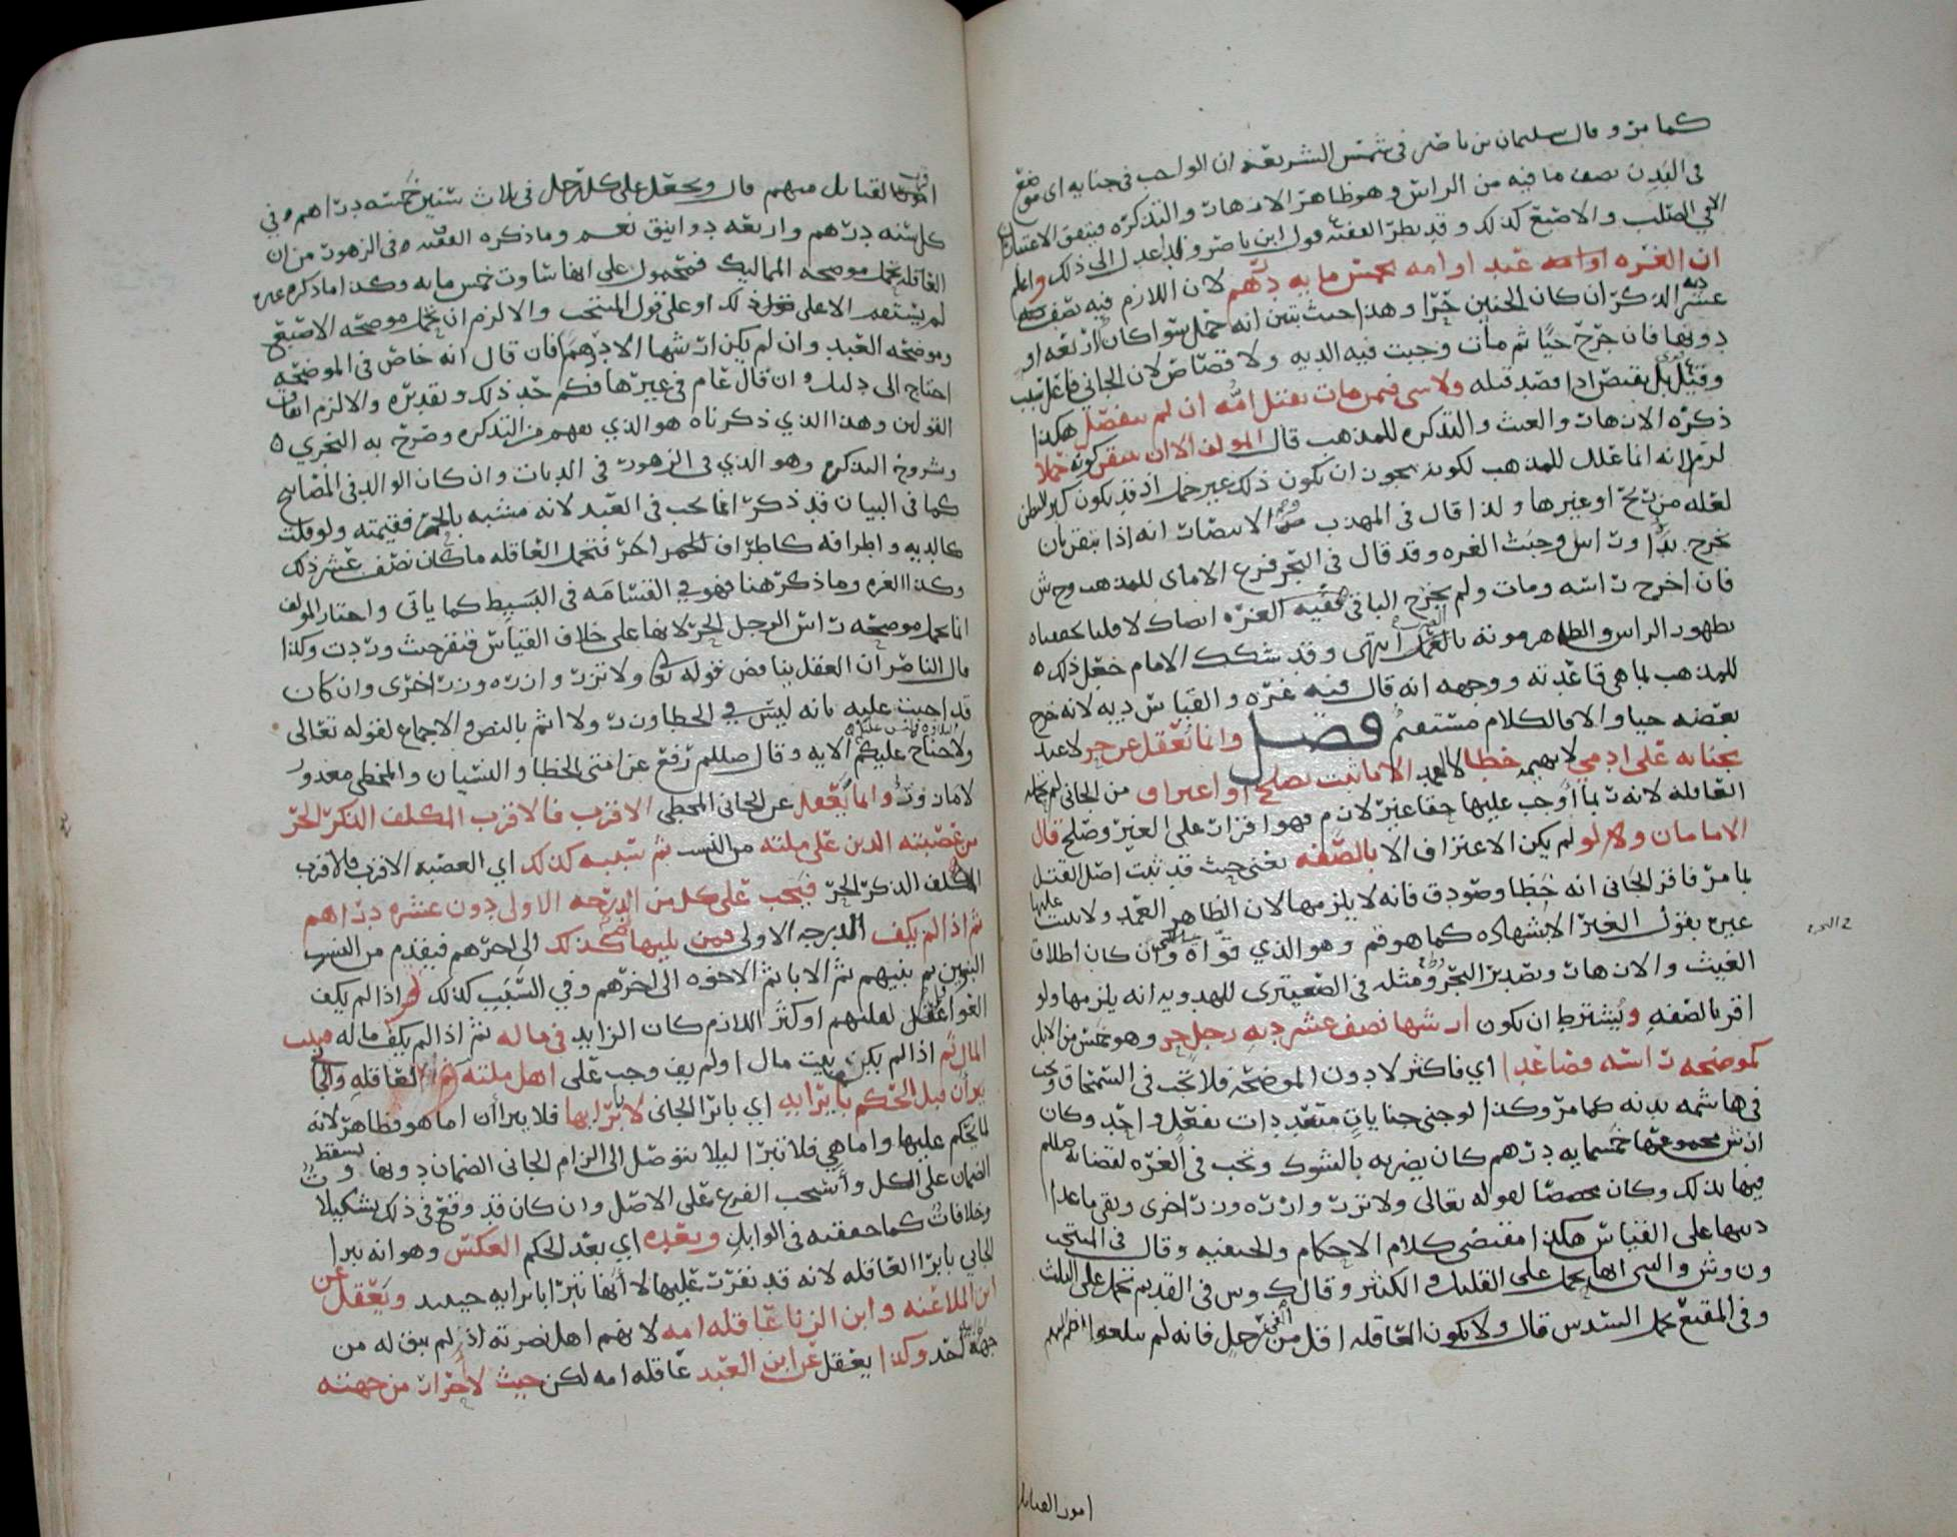 كما مر وقال سليمان بن ناصر في شمس الشريعة ان الواجب في جنايه اي موضع
في البدن نصف ما فيه من الراس وهو ظاهر الازهار والتذكره فيتفق الاعتبار
الا في الصلب والاصبع كذلك وقد نظر الفقيه قول ابن ناصر ولذا عدل الى ذلك واعلم
ان الغره عبد او امه بخمس مايه درهم لان اللازم فيه نصف
عشر دية الذكر ان كان الجنين حرا وهذا حيث تبين انه حمل سوا كان اربعه او
دونها فان خرج حيا ثم مات وجبت فيه الديه ولا قصاص لان الجاني فاعل سبب
وقيل بل يقتص اذا قصد قتله ولا شي فيمن مات بقتل امه ان لم ينفصل هكذا
ذكره الازهار والغيث والتذكره للمذهب قال المولف الا ان تيقن كونه حملا
لزم لانه انما علل للمذهب لكونه يجوز ان يكون ذلك غير حمل اذ قد يكون كبر البطن
لعله من ريح او غيرها ولذا قال في المهذب الانتصار انه اذا ضرب بان
خرج يدا وراس وجبت الغره وقد قال في البحر فرع الامام للمذهب وح ش
فان اخرج راسه ومات ولم يخرج الباقي ففيه الغره انصاك لا قلنا تحققناه
بظهور الراس والظاهر موته بالضرب انتهى وقد شكك الامام خعل ذلك
للمذهب بما هي قاعدته ووجهه انه قال فيه غره والقياس ديه لانه خرج
بعضه حيا والا فالكلام مستقيم فصل وانما تعقل عن حر لا عبد
بجنايه على ادمي لا بهيمه خطا لا العمد الا ما ثبت بصلح او اعتراف من الجاني لم تحمله
العاقله لانه ربما اوجب عليها حقا غير لازم فهو اقرار على الغير وصلح قال
الامامان ولا لو لم يكن الاعتراف الا بالصفه يعني حيث قد ثبت اصل القتل
بما مر فاقر الجاني انه خطا وصودق فانه لا يلزمها لان الظاهر العمد ولا يثبت عليها
غيره بقول الغير الا بشهاده كما هو قم وهو الذي قواه وان كان اطلاق
الغيث والازهار وتصدير البحر ومثله في الصعيتري للهدويه انه يلزمها ولو
اقر بالصفه ويشترط ان يكون ارشها نصف عشر ديه رجل حر وهو خمس من الابل
كموضحه راسه فصاعدا اي فاكثر لا دون الموضحه فلا تجب في السمحاق وتجب
في هاشمه بدنه كما مر وكذا لو جنى جنايات متعددات بفعل واحد وكان
ارش مجموعها خمسمايه درهم كان يضربه بالشوك وتجب في الغره لقضائه صللم
فيها بذلك وكان مخصصا لقوله تعالى ولا تزر وازره وزر اخرى وبقي ماعدا
ديتها على القياس هكذا مقتضى كلام الاحكام والحنفيه وقال في المنتخب
ون وش والبتي انها تحمل على القليل والكثير وقال ك وس في القديم تحمل على الثلث
وفي المقنع تحمل السدس قال ولا تكون العاقله اقل من الفي رجل فانه لم يبلغوا انضم اليهم
امور القبايل
اقرب القبايل منهم قال ويجعل على كل رجل في ثلاث سنين خمسه دراهم وفي
كل سنه درهم واربعه دوانيق نعم وما ذكره الفقيه في الزهور من ان
العاقله تحمل موضحه المماليك فمحمول على انها ساوت خمس مايه وكذا ما ذكره غيره
لم يستقم الا على ذلك او على قول المنتخب والا لزم ان تحمل موضحه الاصبع
وموضحه العبد وان لم يكن ارشها الا درهم فان قال انه خاص في الموضحه
احتاج الى دليل وان قال عام في غيرها فكم حد ذلك وتقديره والا لزم اتفاق
القولين وهذا الذي ذكرناه هو الذي يفهم من التذكره وصرح به النجري
وشروح التذكره وهو الذي في الزهور في الديات وان كان الوالد في المصابيح
كما في البيان قد ذكر انما يجب في العبد لانه مشبه بالحر فقيمته ولو قلت
كالديه واطرافه كاطراف الحر اكثر فتحمل العاقله ما كان نصف عشر ذلك
وكذا الغره وما ذكر هنا فهو في القسامه في البسيط كما ياتي واختار المولف
انما تحمل موضحه راس الرجل الحر لانها على خلاف القياس فتقر حيث وردت وكذا
قال الناصر ان العقل يناقض قوله تعالى ولا تزر وازره وزر اخرى وان كان
قد اجيب عليه بانه ليس في الخطا وزر ولا اثم بالنص والاجماع لقوله تعالى
ولا جناح عليكم الايه وقال صللم رفع عن امتي الخطا والنسيان والمخطي معذور
لا مازور وانما يعقل عن الجاني المخطي الاقرب فالاقرب المكلف الذكر الحر
من عصبته الذين على ملته من النسب ثم سببه كذلك اي العصبه الاقرب فالاقرب
المكلف الذكر الحر فيجب على كل من الدرجه الاولى دون عشره دراهم
ثم اذا لم يكف الدرجه الاولى فمن يليها كذلك الى اخرهم فيقدم من النسب
البنون ثم بنيهم ثم الابا ثم الاخوه الى اخرهم وفي السبب كذلك او اذا لم يكف
العواقل لقلتهم او كثر اللازم كان الزايد في ماله ثم اذا لم يكف ماله فبيت
المال ثم اذا لم يكن بيت مال او لم يف وجب على اهل ملته ثم العاقله والجاني
يبرأن قبل الحكم بابرائه اي بابرا الجاني لا بابرائها فلا يبرأ أن اما هو فظاهر لانه
لما يحكم عليها واما هي فلا تبرا ليلا يتوصل الى الزام الجاني الضمان دونها ويسقط
الضمان على الكل وانسحب الفرع على الاصل وان كان قد وقع في ذلك تشكيلا
وخلافات كما حققته في الوابل وبعده اي بعد الحكم العكس وهو انه يبرا
الجاني بابرا العاقله لانه قد تقرر عليها لا انها تبرا بابرائه حينئذ ويعقل عن
ابن الملاعنه وابن الزنا عاقله امه لانهم اهل نصرته اذ لم يبق له من
جهة ابيه احد وكذا يعقل عن ابن العبد عاقله امه لكن حيث لا احرار من جهته